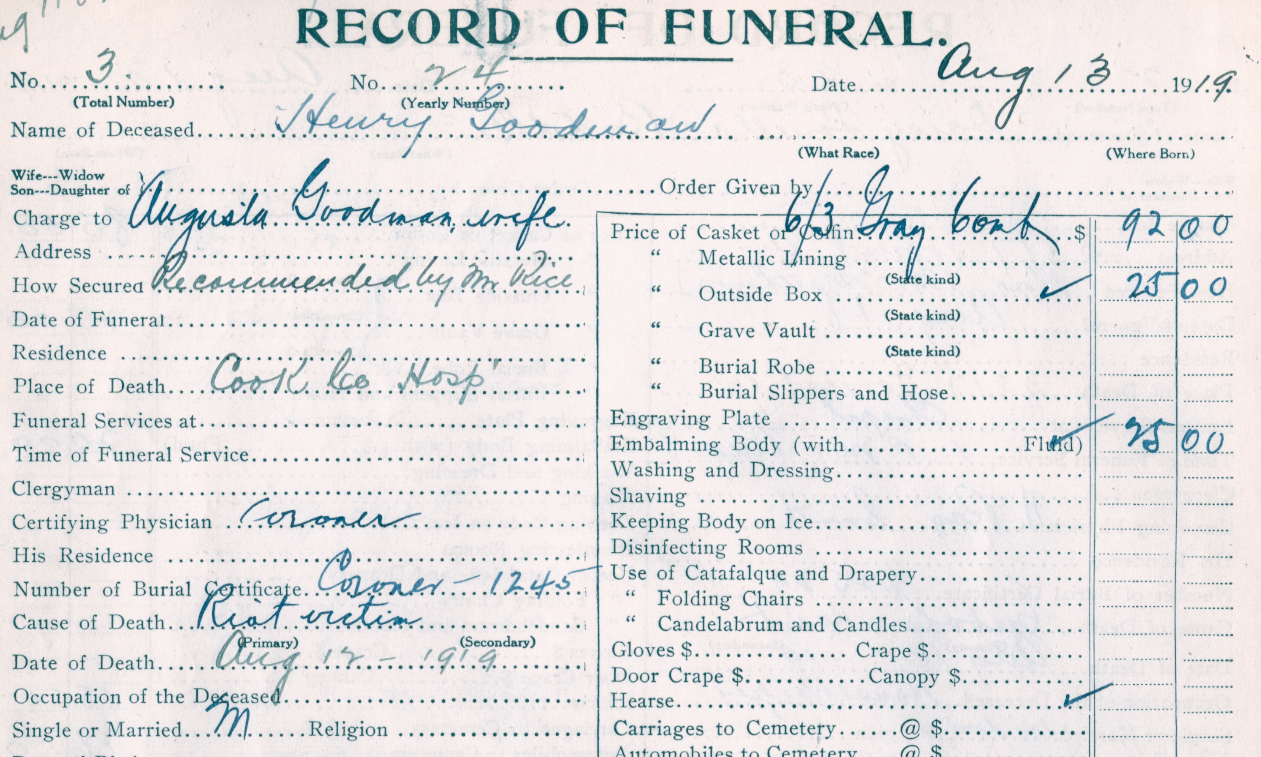 RECORD OF FUNERAL.
No. 3. No. 24 Date Aug 13 1919.
(Total Number) (Yearly Number)
Name of Deceased Henry Goodman
(What Race) (Where Born)
Wife---Widow
Son---Daughter of Order Given by
Charge to Augusta Goodman, wife.
Address
How Secured Recommended by Mr Rice
Date of Funeral
Residence
Place of Death Cook Co Hosp
Funeral Services at
Time of Funeral Service
Clergyman
Certifying Physician Coroner
His Residence
Number of Burial Certificate Coroner - 1245
Cause of Death Riot victim
(Primary) (Secondary)
Date of Death Aug 12 - 1919
Occupation of the Deceased
Single or Married M Religion
Price of Casket or Coffin 6/3 Gray $ 92 00
“ Metallic Lining
(State kind)
“ Outside Box ✓ 25 00
(State kind)
“ Grave Vault
(State kind)
“ Burial Robe
“ Burial Slippers and Hose
Engraving Plate
Embalming Body (with Fluid) ✓ 25 00
Washing and Dressing
Shaving
Keeping Body on Ice
Disinfecting Rooms
Use of Catafalque and Drapery
“ Folding Chairs
“ Candelabrum and Candles
Gloves $ Crape $
Door Crape $ Canopy $
Hearse ✓
Carriages to Cemetery @ $
Automobiles to Cemetery @ $